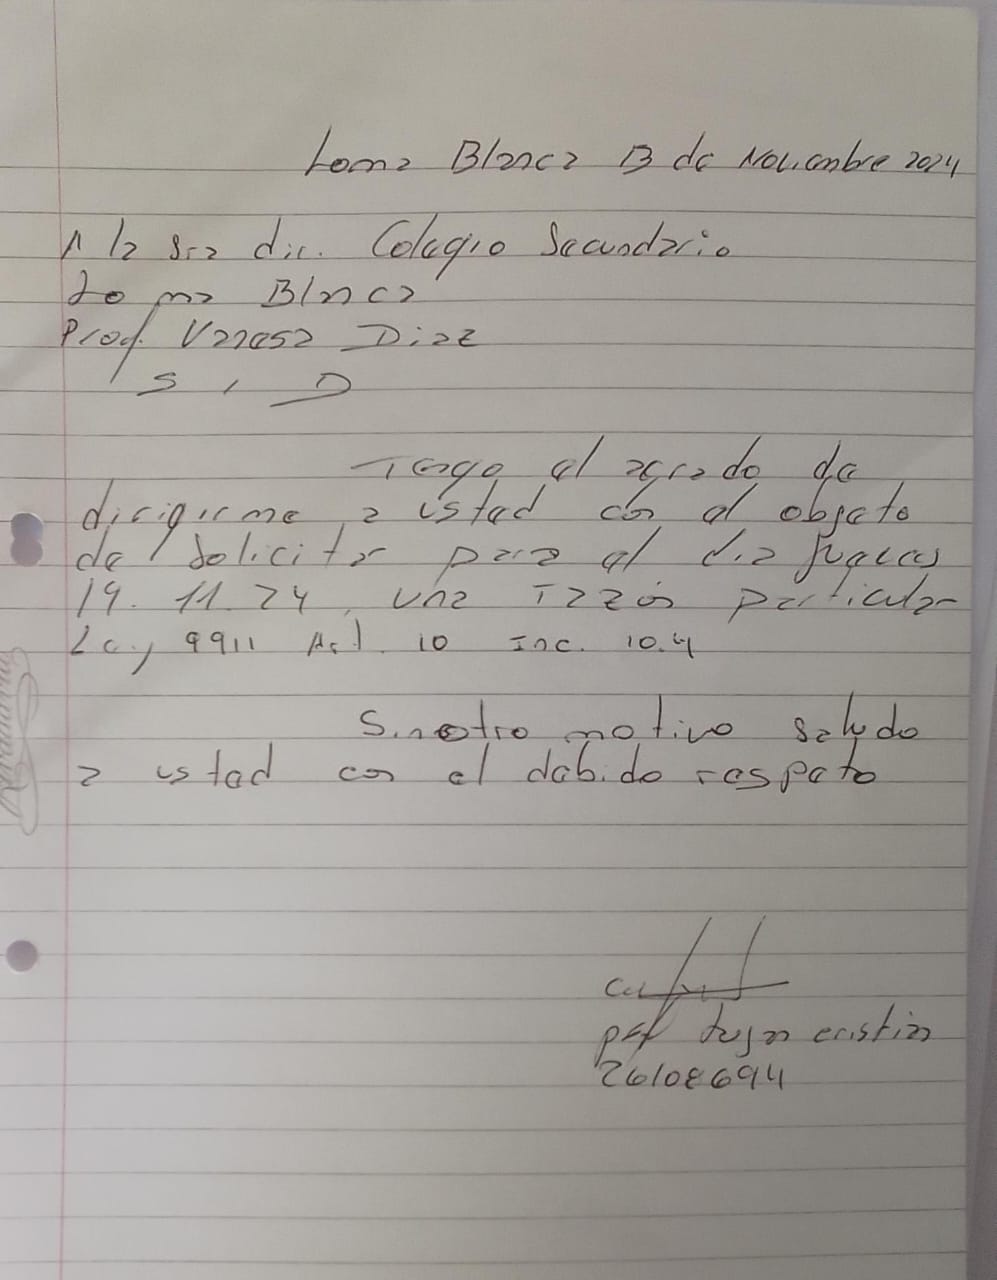 Loma Blanca 13 de Noviembre 2024
A la Sra dir. Colegio Secundario
Loma Blanca
Prof. Vanesa Diaz
S / D
Tengo el agrado de
dirigirme a usted con el objeto
de solicitar para el dia jueves
19.11.24, una razón particular
Ley 9911 Art. 10 Inc. 10.4
Sin otro motivo saludo
a usted con el debido respeto
prof Lujan Cristian
26108694